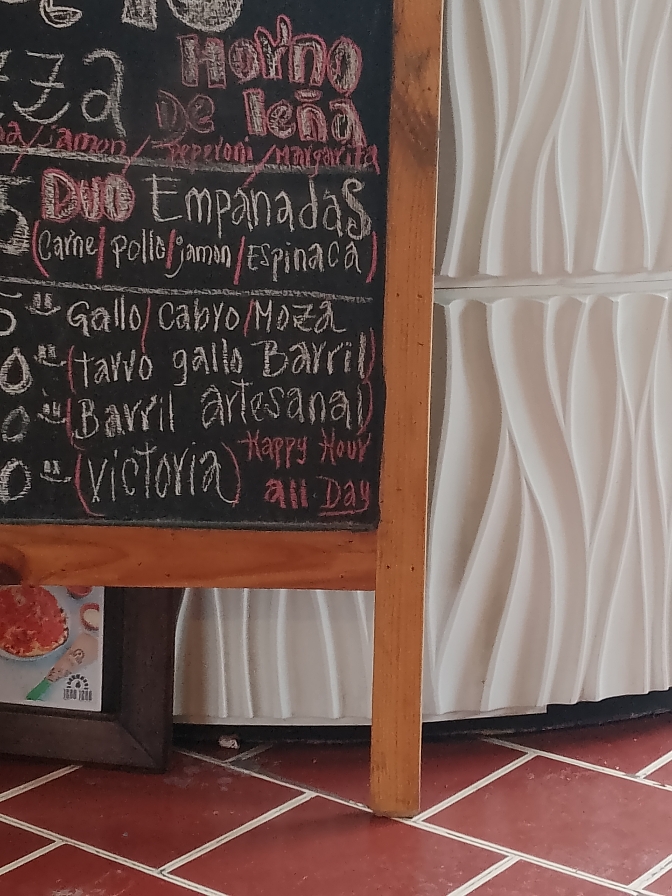 Horno
zza De leña
/jamon/peperoni/Margarita
5 Duo EmpanadaS
(Carne/pollo/jamon/Espinaca)
5 Gallo/Cabro/Moza
0 (tarro gallo Barril)
0 (Barril artesanal)
Happy Hour
0 (victoria) all Day